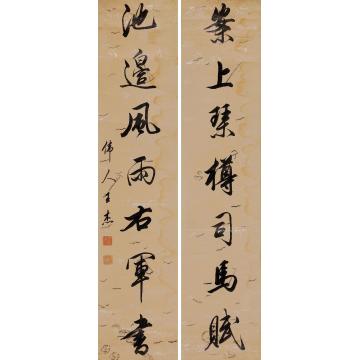 案上琴樽司馬賦
池邊風雨右軍書
偉人王杰